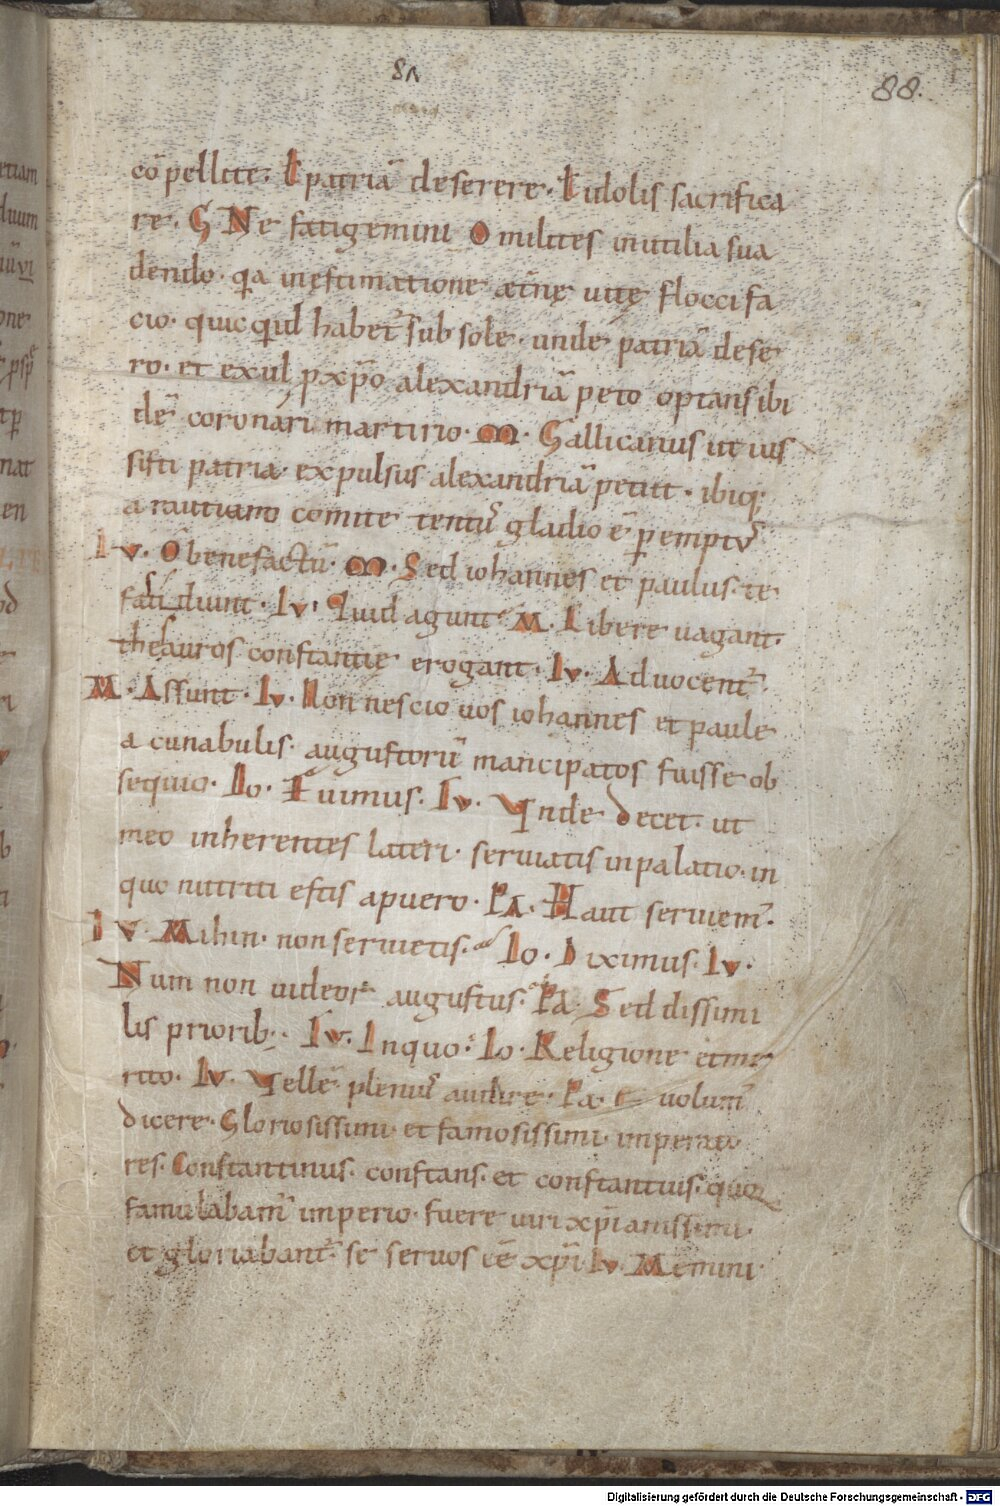 81
88.
cōpellite. Ł patriā deserere. Ł idolis sacrifica
re. G Ne fatigemini O milites inutilia sua
dendo. qa inęstimatione ætnę uitę flocci fa
cio. quicqid habet sub sole. unde patriā dese
ro. et exul p xpo alexandriā peto optans ibi
dē coronari martirio. M. Gallicanus ut ius
sisti patria. expulsus alexandriā petiit. ibiq;
a rautiano comite tentus gladio ē pemptus
Iv. O benefactū. M. Sed iohannes et paulus. te
fatidiunt. Iv. Quid agunt. M. Libere uagant.
thesauros constantię erogant. Iv. Aduocent.
M. Assunt. Iv. Non nescio uos iohannes et paule
a cunabulis. augustorū mancipatos fuisse ob
sequio. Io. Fuimus. Iv. Vnde decet. ut
meo inherentes lateri. seruiatis in palatio. in
quo nutriti estis a puero. PA. Haut seruiem.
Iv. Mihin. non seruietis. Io. Diximus. Iv.
Num non uideor augustus. PA. Sed dissimi
lis priorib;. Iv. Inquo. Io. Religione et me
rito. Iv. Vellē plenius audire. Pa. uolum
dicere. Gloriosissimi. et famosissimi. imperato
res. Constantinus. constans. et constantius. quor
famulabam imperio. fuere uiri xpianissimi.
et gloriabant se seruos eē xpi. Iv. Memini.
Digitalisierung gefördert durch die Deutsche Forschungsgemeinschaft - DFG